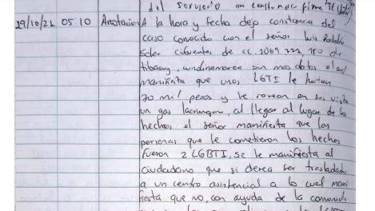 del servicio
29/10/21 05:10 Anotación A la hora y fecha dejo constancia del
caso conocido con el señor Luis
de cc. 1069
Tibacuy, cundinamarca sin mas datos el cual
manifiesta que unos LGTI le hurtan
70 mil pesos y le rocean en su vista
un gas lacrimogeno, al llegar al lugar de los
hechos el señor manifiesta que las
personas que le cometieron los hechos
fueron 2 LGBTI, se le manifiesta al
ciudadano que si desea ser trasladado
a un centro asistencial a lo cual mani
fiesta que no, con ayuda de la comunidad